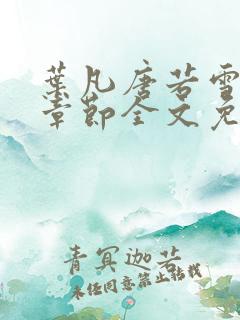 葉凡唐若雪
章節全文免
青冥迦若
未经同意禁止转载